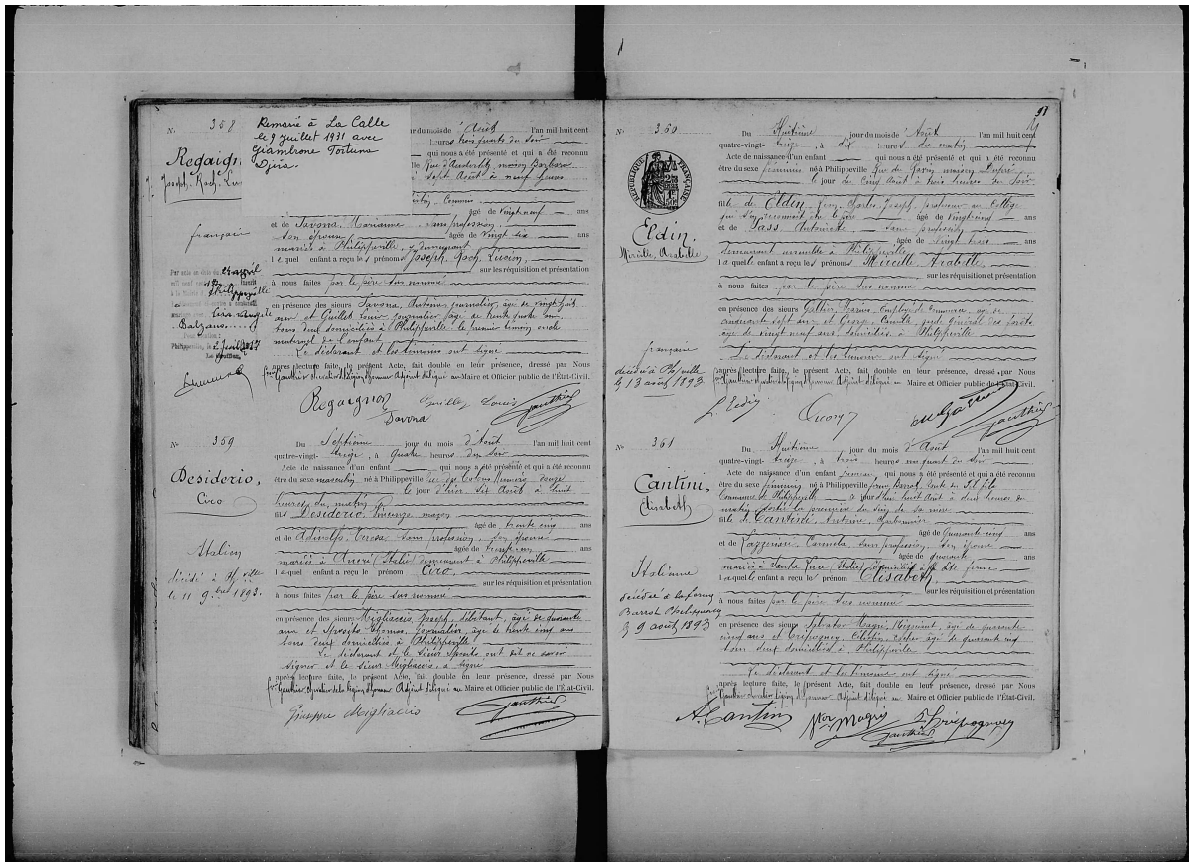 N° 358
Remarié à La Calle
le 9 juillet 1931 avec
Giambrone Fortuna
Djia.
Regaign
Joseph, Roch, Luc
français
jour du mois d'Août l'an mil huit cent
heures trois quarts du soir
qui nous a été présenté et qui a été reconnu
Rue d'Austerlitz maison Barbara
sept Août à neuf heures
âgé de vingt neuf ans
et de Savona, Marianne sans profession,
son épouse âgée de vingt six ans
mariés à Philippeville, y demeurant
lequel enfant a reçu les prénoms Joseph, Roch, Lucien,
sur les réquisition et présentation
à nous faites par le père sus nommé
en présence des sieurs Savona, Antoine journalier, âgé de vingt huit
ans et Guillet Louis, journalier âgé de trente quatre ans
tous deux domiciliés à Philippeville le premier témoin oncle
maternel de l'enfant
Le déclarant et les témoins ont signé
après lecture faite, le présent Acte, fait double en leur présence, dressé par Nous
Gauthier chevalier de la Légion d'honneur Adjoint délégué au Maire et Officier public de l'État-Civil.
Regaignon Guillet Louis Gauthier
Savona
N° 359
Desiderio,
Ciro
Italien
décédé à Ph ville
le 11 9bre 1893.
Du Septième jour du mois d'Août l'an mil huit cent
quatre-vingt- treize, à quatre heures du soir
Acte de naissance d'un enfant qui nous a été présenté et qui a été reconnu
être du sexe masculin né à Philippeville rue du Colonel Rémière douze
le jour d'hier six Août à huit
heures du matin
fils Desiderio, Vincenzo maçon
âgé de trente cinq ans
et de Adinolfi, Teresa sans profession, son épouse
âgée de trente un ans
mariés à (Italie) demeurant à Philippeville
lequel enfant a reçu le prénom Ciro,
sur les réquisition et présentation
à nous faites par le père sus nommé
en présence des sieurs Migliaccio, Joseph, débitant, âgé de quarante
ans et Sposito Thomas, journalier, âgé de trente cinq ans
tous deux domiciliés à Philippeville
Le déclarant et le sieur Sposito ont dit ne savoir
signer et le sieur Migliaccio, a signé
après lecture faite, le présent Acte, fait double en leur présence, dressé par Nous
Gauthier chevalier de la Légion d'honneur Adjoint délégué au Maire et Officier public de l'État-Civil.
Giuseppe Migliaccio Gauthier
N° 360
RÉPUBLIQUE FRANÇAISE
Eldin,
Mireille, Arabelle
française
décédée à Ph ville
le 13 août 1893
Du Huitième jour du mois d'Août l'an mil huit cent
quatre-vingt- treize, à dix heures du matin
Acte de naissance d'un enfant qui nous a été présenté et qui a été reconnu
être du sexe féminin né à Philippeville rue du maison Dupré
le jour du cinq Août à trois heures du soir
fille de Eldin, Jean, Charles, Joseph, professeur au Collège
qui s'en reconnaît être le père âgé de vingt cinq ans
et de Jass, Antoinette, sans profession
âgée de vingt trois ans
demeurant ensemble à Philippeville
laquelle enfant a reçu les prénoms Mireille, Arabelle
sur les réquisition et présentation
à nous faites par le père sus nommé
en présence des sieurs Employé de commerce, âgé de
cinquante sept ans et garde général des forêts
âgé de vingt neuf ans, domiciliés à Philippeville
Le déclarant et les témoins ont signé
après lecture faite, le présent Acte, fait double en leur présence, dressé par Nous
Gauthier chevalier Légion d'honneur Adjoint délégué au Maire et Officier public de l'État-Civil.
Gauthier
N° 361
Cantini,
Elisabeth
Italienne
décédée à la ferme
Barrot Philippeville
le 9 août 1893
Du Huitième jour du mois d'Août l'an mil huit cent
quatre-vingt- treize, à trois heures un quart du soir
Acte de naissance d'un enfant jumeau qui nous a été présenté et qui a été reconnu
être du sexe féminin né à Philippeville ferme Barrot, route de
Commune de Philippeville ce jour d'hui huit Août à deux heures du
matin, sortie la première du sein de sa mère
fille de Cantini, Antoine, charbonnier
âgé de quarante cinq ans
et de Lazzerini, Carmela, sans profession, son épouse
âgée de quarante ans
mariés à (Italie) domiciliés à la dite ferme
laquelle enfant a reçu le prénom Elisabeth,
sur les réquisition et présentation
à nous faites par le père sus nommé
en présence des sieurs Salvator Magri, Négociant, âgé de quarante
cinq ans et âgé de quarante cinq
tous deux domiciliés à Philippeville
Le déclarant et les témoins ont signé
après lecture faite, le présent Acte, fait double en leur présence, dressé par Nous
Gauthier chevalier Légion d'honneur Adjoint délégué au Maire et Officier public de l'État-Civil.
A. Cantini Magri
Gauthier